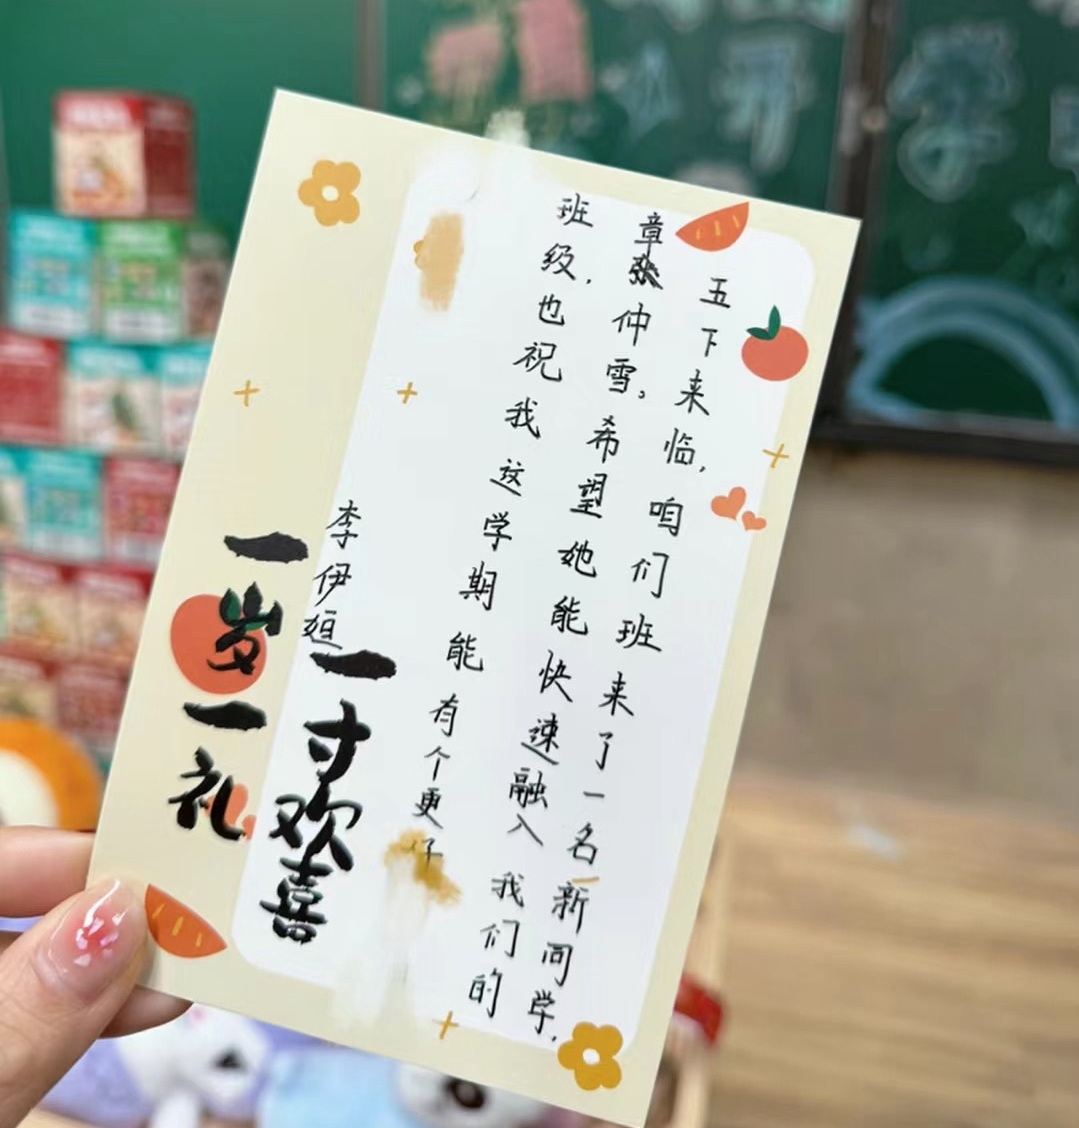 五下来临，咱们班来了一名新同学，
章仲雪，希望她能快速融入我们的
班级，也祝我这学期能有个更好
李伊姮
一岁一礼
一寸欢喜
开学